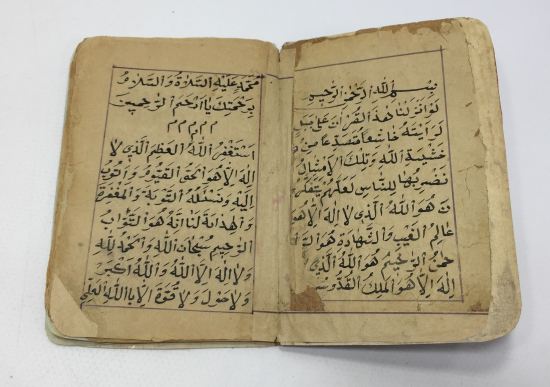 بسم الله الرحمن الرحيم
لو انزلنا هذا القرآن على جبل
لرايته خاشعا متصدعا من
خشية الله وتلك الامثال
نضربها للناس لعلهم يتفكرو
ن هو الله الذي لا اله الا هو
عالم الغيب والشهادة هو الر
حمن الرحيم هو الله الذي لا
اله الا هو الملك القدوس
محمد عليه الصلاة والسلام
برحمتك يا ارحم الراحمين
م م م م م
استغفر الله العظيم الذي لا
اله الا هو الحي القيوم واتوب
اليه ونسئله التوبة والمغفرة
والهداية لنا انه هو التواب
الرحيم سبحان الله والحمد لله
ولا اله الا الله والله اكبر
ولا حول ولا قوة الا بالله العلي